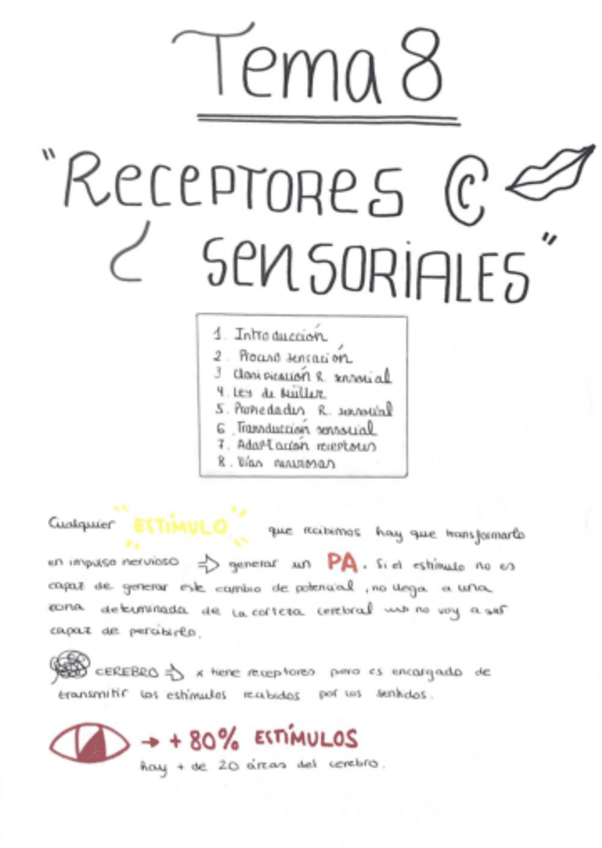 Tema 8
"RECEPTORES
SENSORIALES"
1. Introducción
2. Proceso sensación
3 Clasificación R. sensorial
4. Ley de Müller
5. Propiedades R. sensorial
6. Transducción sensorial
7. Adaptación receptores
8. Vías nerviosas
Cualquier ESTÍMULO que recibimos hay que transformarlo
en impulso nervioso ⇒ generar un PA. Si el estímulo no es
capaz de generar este cambio de potencial, no llega a una
zona determinada de la corteza cerebral no voy a ser
capaz de percibirlo.
CEREBRO ⇒ x tiene receptores pero es encargado de
transmitir los estímulos recibidos por los sentidos.
→ + 80% ESTÍMULOS
hay + de 20 áreas del cerebro.